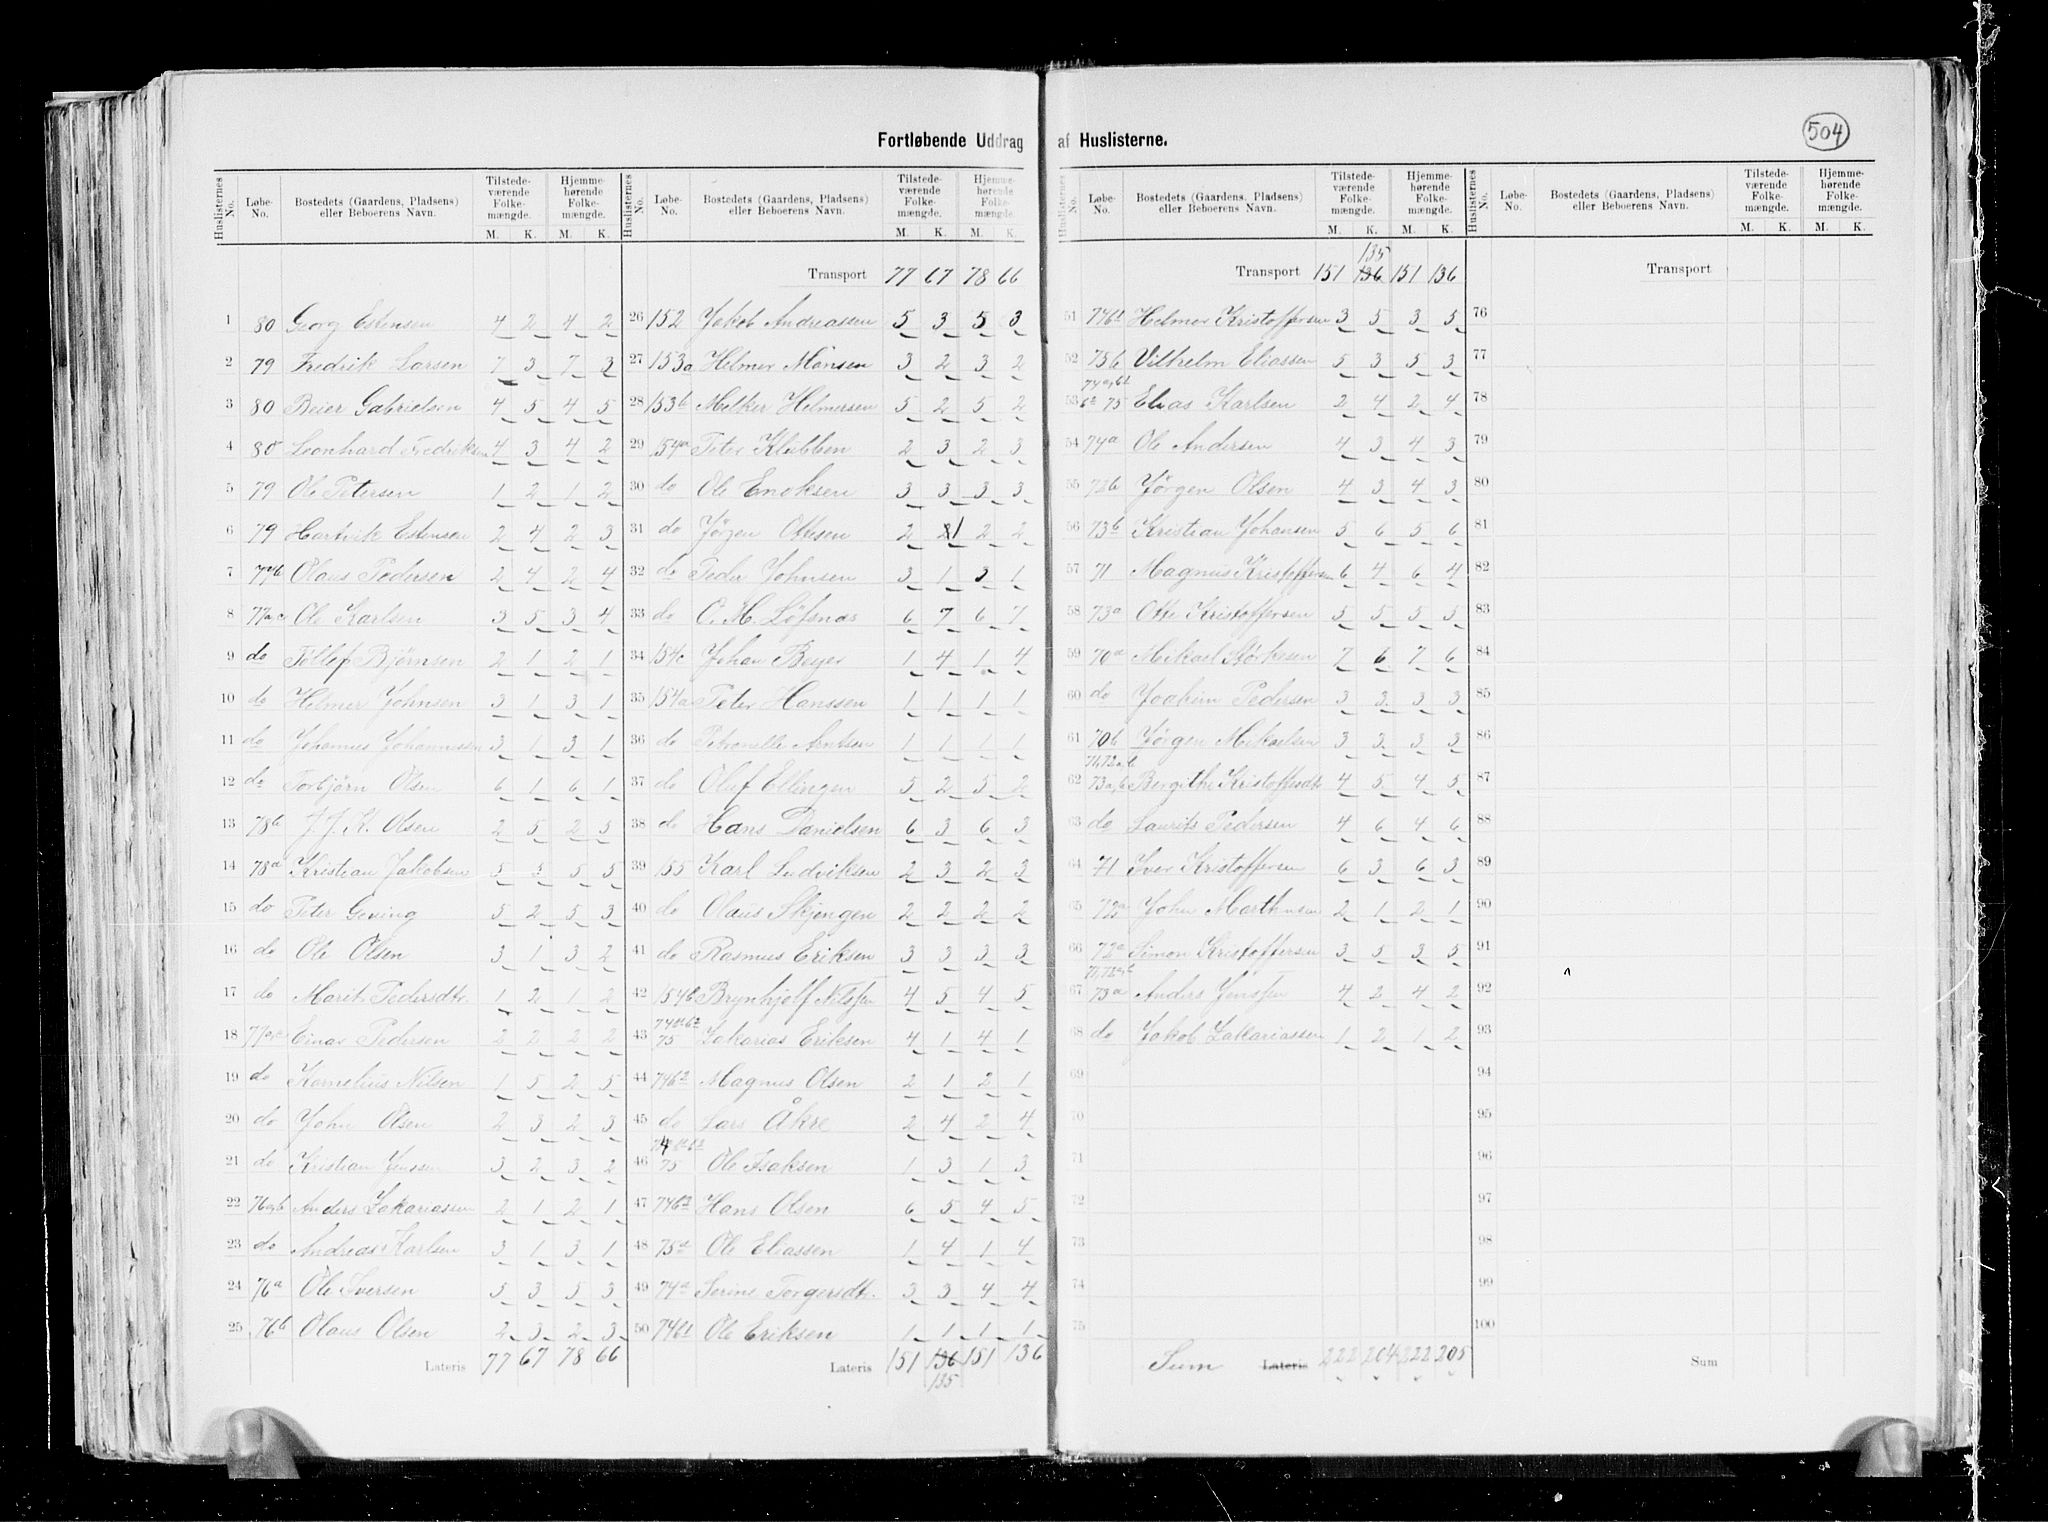 504
Fortløbende Uddrag af Huslisterne.
Huslisternes No. Løbe-No. Bostedets (Gaardens, Pladsens) eller Beboerens Navn. Tilstedeværende Folkemængde. M. K. Hjemmehørende Folkemængde. M. K.
1 80 Georg Estensen 4 2 4 2
2 79 Fredrik Larsen 7 3 7 3
3 80 Beier Gabrielsen 4 5 4 5
4 80 Leonhard Fredriksen 4 3 4 2
5 79 Ole Petersen 1 2 1 2
6 79 Hartvik Estensen 2 4 2 3
7 77b Olaus Pedersen 2 4 2 4
8 77a,c Ole Karlsen 3 5 3 4
9 do Tollef Bjørnsen 2 1 2 1
10 do Helmer Johnsen 3 1 3 1
11 do Johannes Johannessen 3 1 3 1
12 do Torbjørn Olsen 6 1 6 1
13 78b J. J. K. Olsen 2 5 2 5
14 78a Kristian Jakobsen 5 5 5 5
15 do Peter Geving 5 2 5 3
16 do Ole Olsen 3 1 3 2
17 do Marit Pedersdtr. 1 2 1 2
18 77a,c Einar Pedersen 2 2 2 2
19 do Kornelius Nilsen 1 5 2 5
20 do John Olsen 2 3 2 3
21 do Kristian Jenssen 3 2 3 2
22 76a,b Anders Zakariassen 2 1 2 1
23 do Andreas Karlsen 3 1 3 1
24 76a Ole Iversen 5 3 5 3
25 76b Olaus Olsen 2 3 2 3
Lateris 77 67 78 66
Huslisternes No. Løbe-No. Bostedets (Gaardens, Pladsens) eller Beboerens Navn. Tilstedeværende Folkemængde. M. K. Hjemmehørende Folkemængde. M. K.
Transport 77 67 78 66
26 152 Jakob Andreassen 5 3 5 3
27 153a Helmer Monsen 3 2 3 2
28 153b Melker Helmersen 5 2 5 2
29 154a Peter Klubben 2 3 2 3
30 do Ole Enoksen 3 3 3 3
31 do Jørgen Ottesen 2 1 2 2
32 do Peder Johnsen 3 1 3 1
33 do O. M. Løfsnæs 6 7 6 7
34 154c Johan Beyer 1 4 1 4
35 154a Peter Hanssen 1 1 1 1
36 do Petronelle Arntsen 1 1 1 1
37 do Oluf Ellingen 5 2 5 2
38 do Hans Danielsen 6 3 6 3
39 155 Karl Ludviksen 2 3 2 3
40 do Olaus Skjengen 2 2 2 2
41 do Rasmus Eriksen 3 3 3 3
42 154b Brynhjelf Nilssen 4 5 4 5
43 74a,b2 75 Zakarias Eriksen 4 1 4 1
44 74b2 Magnus Olsen 2 1 2 1
45 do Lars Åkre 2 4 2 4
46 75 Ole Isaksen 1 3 1 3
47 74b2 Hans Olsen 6 5 4 5
48 75a Ole Eliassen 1 4 1 4
49 74a Serine Torgersdtr. 3 3 4 4
50 74b1 Ole Eriksen 1 1 1 1
Lateris 151 136 151 136
135
Huslisternes No. Løbe-No. Bostedets (Gaardens, Pladsens) eller Beboerens Navn. Tilstedeværende Folkemængde. M. K. Hjemmehørende Folkemængde. M. K.
135
Transport 151 136 151 136
51 74b1 Helmer Kristoffersen 3 5 3 5
52 75b Vilhelm Eliassen 5 3 5 3
53 74a,b1 b2 75 Elias Karlsen 2 4 2 4
54 74a Ole Andersen 4 3 4 3
55 72b Jørgen Olsen 4 3 4 3
56 73b Kristian Johansen 5 6 5 6
57 71 Magnus Kristoffersen 6 4 6 4
58 73a Otte Kristoffersen 5 5 5 5
59 70a Mikael Størksen 7 6 7 6
60 do Joakim Pedersen 3 3 3 3
61 70b Jørgen Mikaelsen 3 3 3 3
62 71,72a,b 73a,b Bergithe Kristoffersdtr 4 5 4 5
63 do Laurits Pedersen 4 6 4 6
64 71 Iver Kristoffersen 6 3 6 3
65 72a John Marthinsen 2 1 2 1
66 72a Simon Kristoffersen 3 5 3 5
67 71,72a,b 73a Anders Jenssen 4 2 4 2
68 do Jakob Zakariassen 1 2 1 2
69
70
71
72
73
74
75
Sum Lateris 222 204 222 205
Huslisternes No. Løbe-No. Bostedets (Gaardens, Pladsens) eller Beboerens Navn. Tilstedeværende Folkemængde. M. K. Hjemmehørende Folkemængde. M. K.
Transport
76
77
78
79
80
81
82
83
84
85
86
87
88
89
90
91
92
93
94
95
96
97
98
99
100
Sum